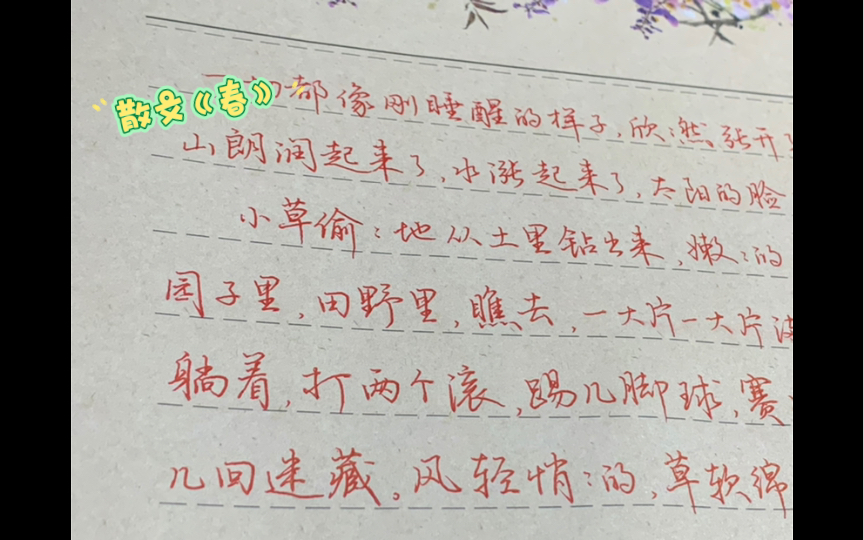 散文《春》
都像刚睡醒的样子，欣然张开
山朗润起来了，水涨起来了，太阳的脸
小草偷：地从土里钻出来，嫩：的
园子里，田野里，瞧去，一大片一大片
躺着，打两个滚，踢几脚球，赛
几回迷藏。风轻悄：的，草软绵